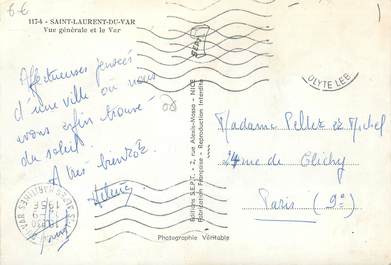 6€
117-6 - SAINT-LAURENT-DU-VAR
Vue générale et le Var
Affectueuses pensées
d'une ville où nous
avons enfin trouvé
du soleil.
A très bientôt
OLYTE LEB
Editions S.E.P.T. - 2, rue Alexis-Mossa - NICE
Fabrication Française - Reproduction Interdite
Madame Pellez et Michel
24 rue de Clichy
Paris (9e)
Photographie Véritable